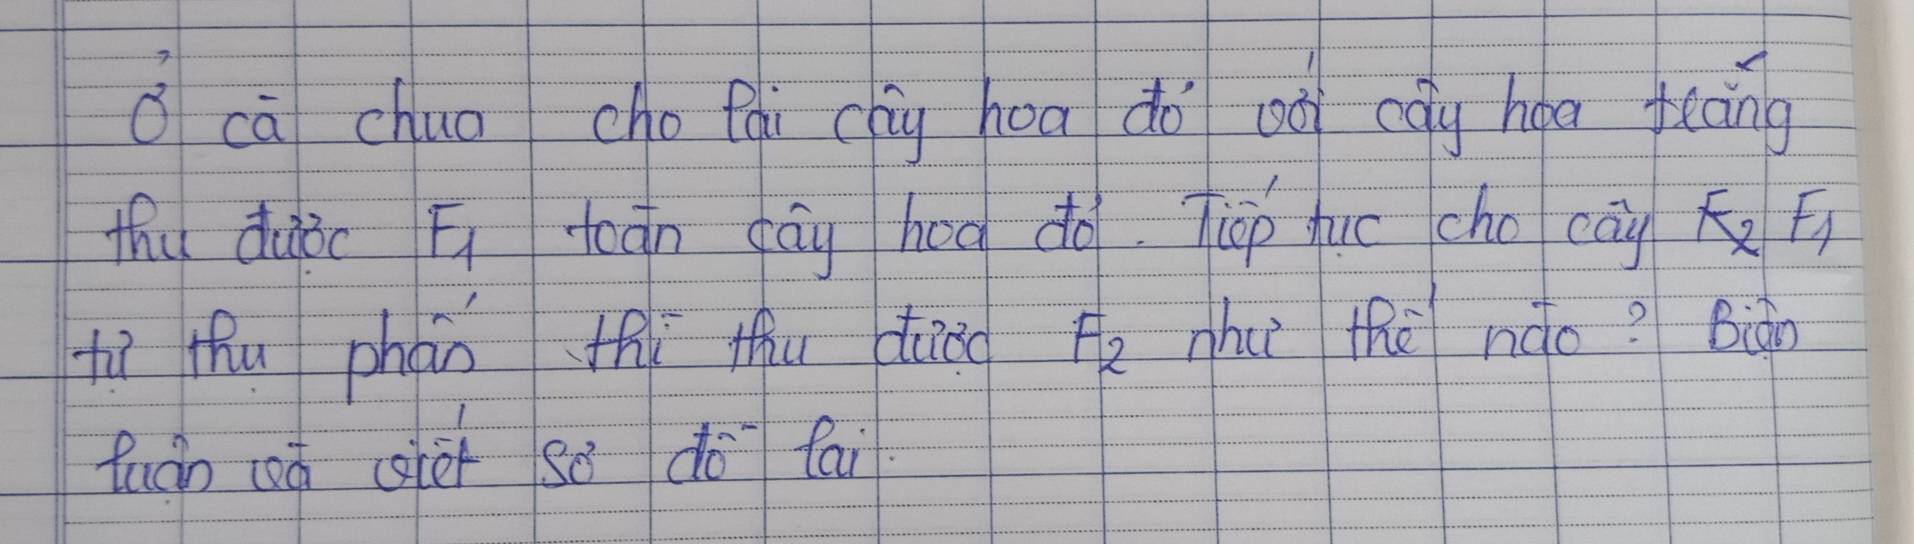 Ở cà chua cho lai cây hoa đỏ với cây hoa trắng
thu được F1 toàn cây hoa đỏ. Tiếp tục cho cây F2 F1
tự thụ phấn thì thu được F2 như thế nào? Biện
luận và viết sơ đồ lai.